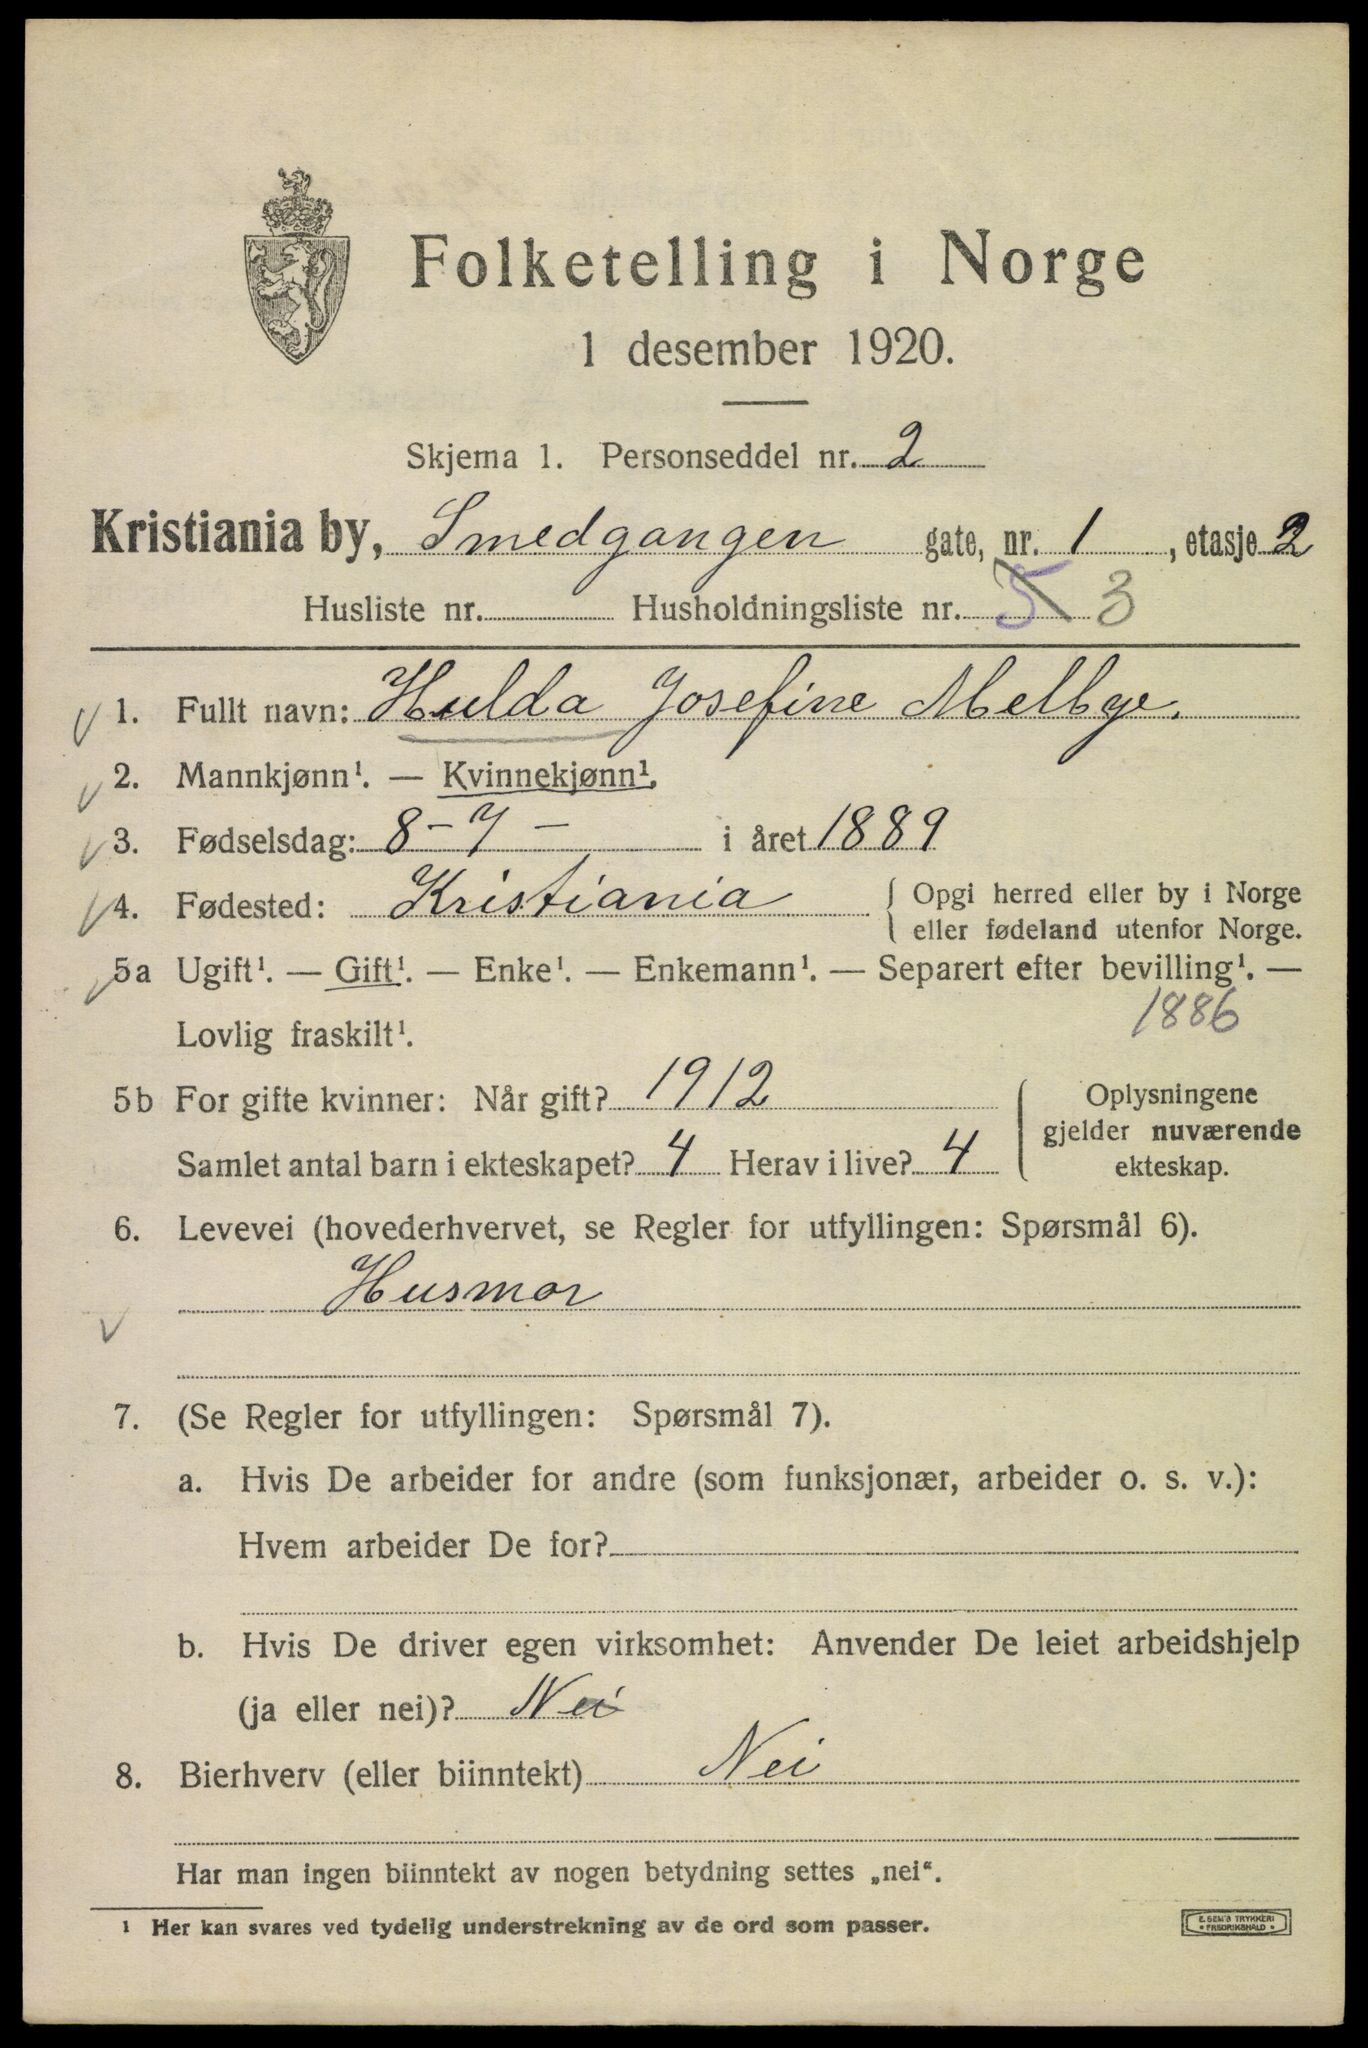 Folketelling i Norge
1 desember 1920.
Skjema 1. Personseddel nr. 2
Kristiania by, Smedgangen gate, nr. 1, etasje 2
Husliste nr. Husholdningsliste nr. 5 3
1. Fullt navn: Hulda Josefine Melbye.
2. Mannkjønn¹. — Kvinnekjønn¹.
3. Fødselsdag: 8-7- i året 1889
4. Fødested: Kristiania { Opgi herred eller by i Norge
eller fødeland utenfor Norge.
5a Ugift¹. — Gift¹. — Enke¹. — Enkemann¹. — Separert efter bevilling¹. —
1886
Lovlig fraskilt¹.
5b For gifte kvinner: Når gift? 1912
Samlet antal barn i ekteskapet? 4 Herav i live? 4
{ Oplysningene
gjelder nuværende
ekteskap.
6. Levevei (hovederhvervet, se Regler for utfyllingen: Spørsmål 6).
Husmor
7. (Se Regler for utfyllingen: Spørsmål 7).
a. Hvis De arbeider for andre (som funksjonær, arbeider o. s. v.):
Hvem arbeider De for?
b. Hvis De driver egen virksomhet: Anvender De leiet arbeidshjelp
(ja eller nei)? Nei
8. Bierhverv (eller biinntekt) Nei
Har man ingen biinntekt av nogen betydning settes „nei“.
¹ Her kan svares ved tydelig understrekning av de ord som passer.
E. SEM'S TRYKKERI
* FREDRIKSHALD *